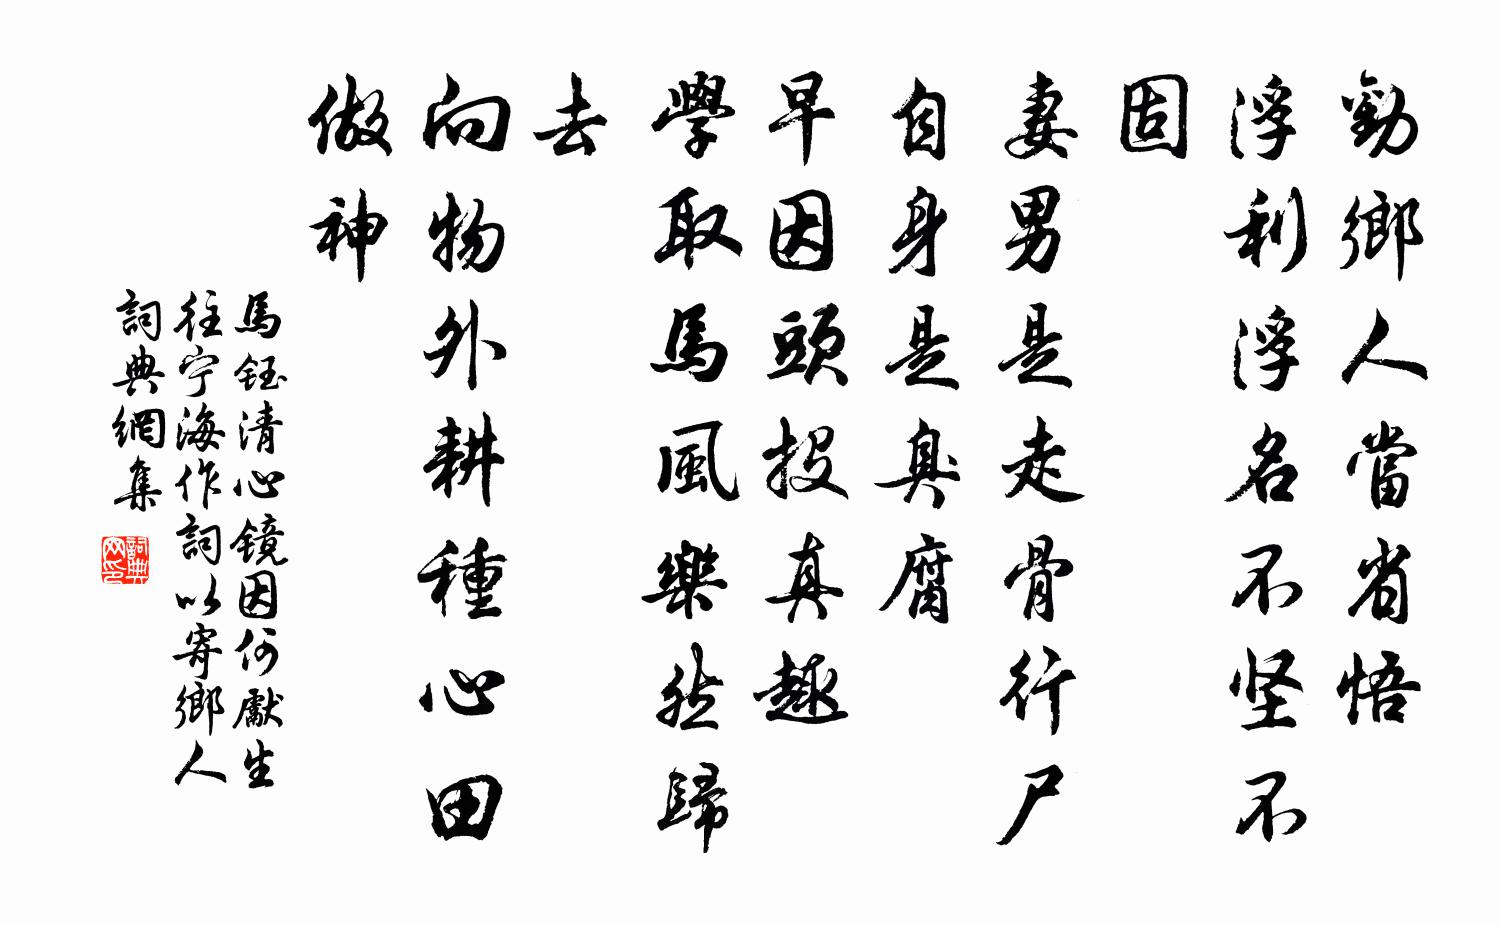 勸鄉人當省悟
浮利浮名不坚不
固
妻男是走骨行尸
自身是臭腐
早因頭投真趣
學取馬風樂然歸
去
向物外耕種心田
做神
馬鈺清心鏡因何獻生
往宁海作詞以寄鄉人
詞典網集
詞典
网印